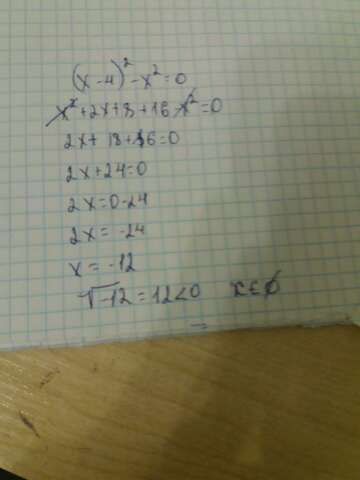 (x-4)²-x²=0
x²+2x+8+16-x²=0
2x+18+16=0
2x+24=0
2x=0-24
2x=-24
x=-12
√-12=12<0 x∈∅